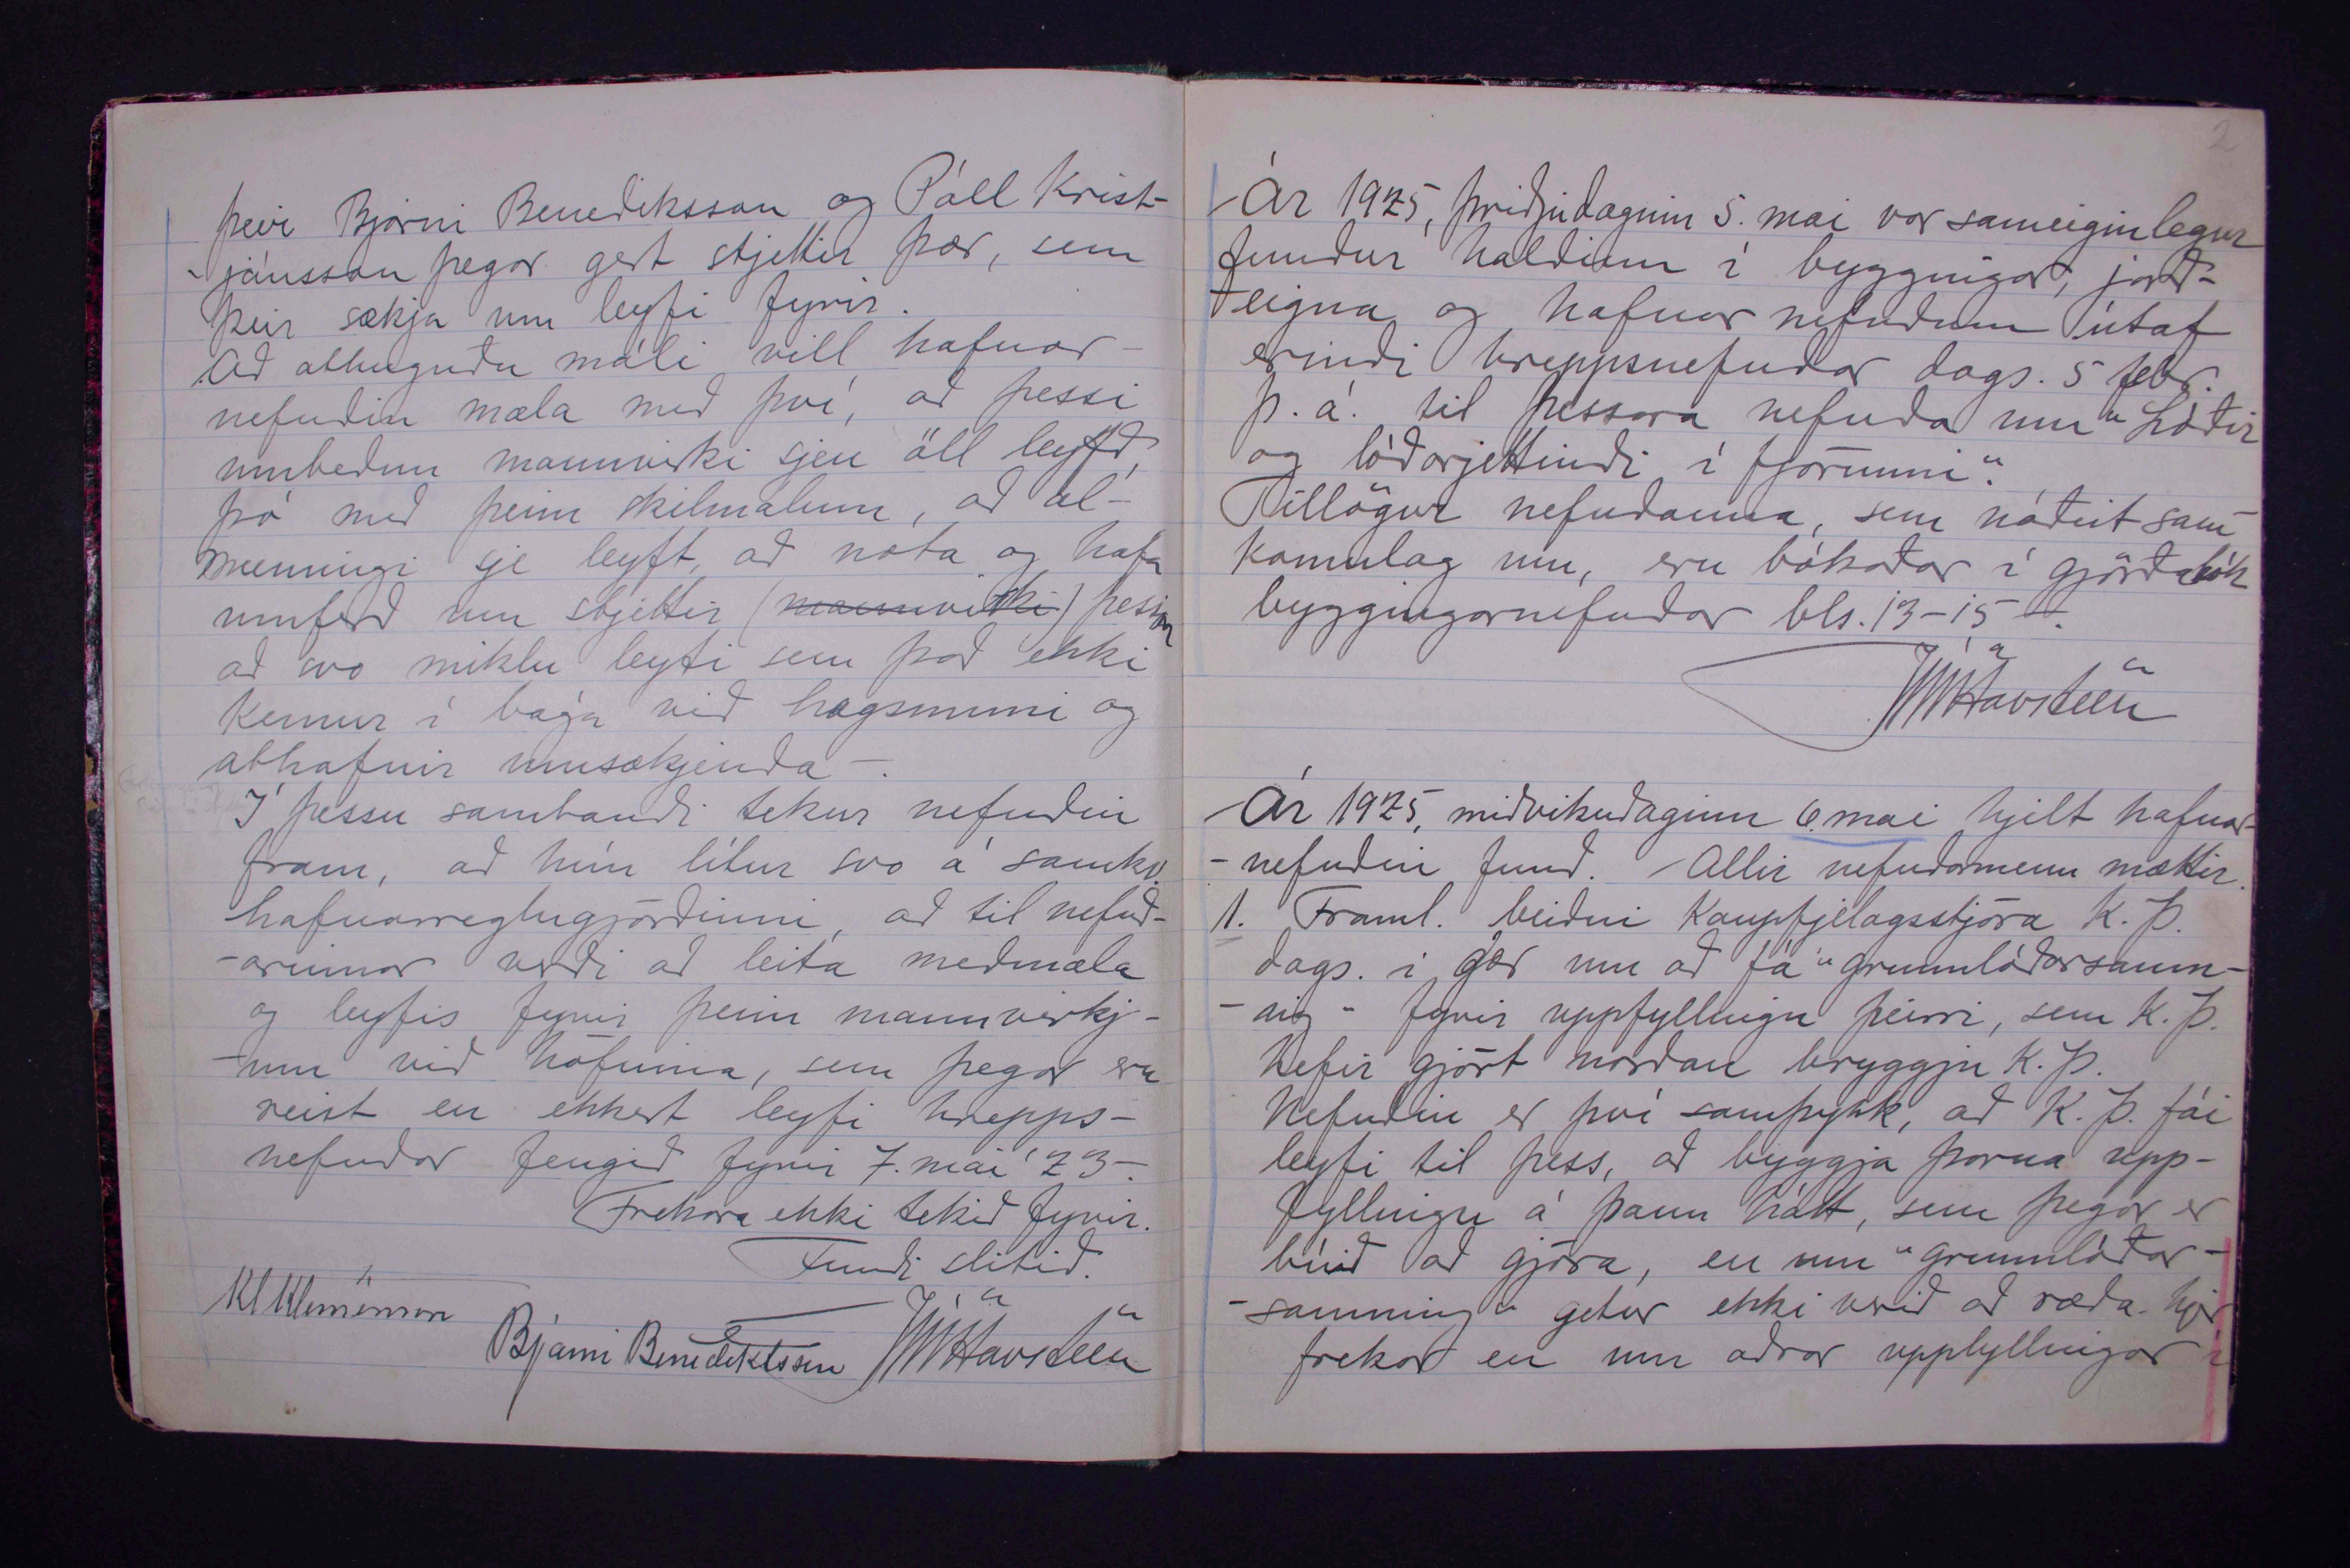 þeir Bjarni Benediktsson og Páll Krist-
-jánsson þegar gert stjettir þær, sem
þeir sækja um leyfi fyrir.
Að athuguðu máli vill hafnar-
nefndin mæla með því, að þessi
umbeðnu mannvirki sjeu öll leyfð,
þó með þeim skilmálum, að al-
menningi sje leyft, að nota og hafa
umferð um stjettir (mannvirki) þessar
að svo miklu leyti sem það ekki
kemur í bága við hagsmuni og
athafnir umsækjenda -.
Í þessu sambandi tekur nefndin
fram, að hún lítur svo á samkv.
hafnarreglugjörðinni, að til nefnd-
-arinnar verði að leita meðmæla
og leyfis fyrir þeim mannvirkj-
-um við höfnina, sem þegar eru
reist en ekkert leyfi hrepps-
nefndar fengið fyrir 7. maí '23-.
Frekara ekki tekið fyrir.
Fundi slitið.
Kl Klemensson
Bjarni Benediktsson JHavsteen
2
Ár 1925, þriðjudaginn 5. maí var sameiginlegur
fundur haldinn í byggingar, jarð-
-eigna og hafnar nefndum útaf
erindi hreppsnefndar dags. 5 febr.
þ. á. til þessara nefnda um "Lóðir
og lóðarjettindi í fjörunni".
Tillögur nefndanna, sem náðist sam-
komulag um, eru bókaðar í gjörðabók
byggingarnefndar bls. 13-15 -.
JHavsteen
Ár 1925, miðvikudaginn 6. maí hjelt hafnar-
-nefndin fund. Allir nefndarmenn mættir.
1. Framl. beiðni Kaupfjelagsstjóra K. Þ.
dags. í gær um að fá "grunnlóðarsamn-
-ing" fyrir uppfyllingu þeirri, sem K. Þ.
hefir gjört norðan bryggju K. Þ.
Nefndin er því samþykk, að K. Þ. fái
leyfi til þess, að byggja þarna upp-
fyllingu á þann hátt, sem þegar er
búið að gjöra, en um "grunnlóðar-
-samning" getur ekki verið að ræða hjer
frekar en um aðrar uppfyllingar í